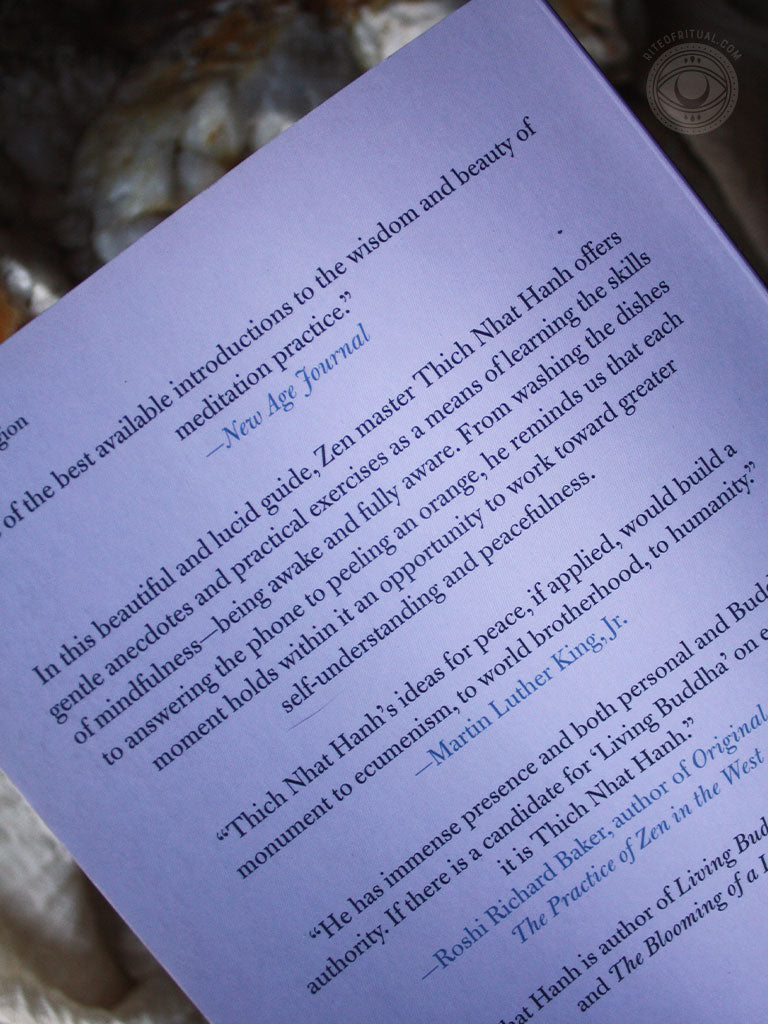 RITEOFRITUAL.COM
gion
of the best available introductions to the wisdom and beauty of
meditation practice.”
—New Age Journal
In this beautiful and lucid guide, Zen master Thich Nhat Hanh offers
gentle anecdotes and practical exercises as a means of learning the skills
of mindfulness—being awake and fully aware. From washing the dishes
to answering the phone to peeling an orange, he reminds us that each
moment holds within it an opportunity to work toward greater
self-understanding and peacefulness.
“Thich Nhat Hanh’s ideas for peace, if applied, would build a
monument to ecumenism, to world brotherhood, to humanity.”
—Martin Luther King, Jr.
“He has immense presence and both personal and Budd
authority. If there is a candidate for ‘Living Buddha’ on e
it is Thich Nhat Hanh.”
—Roshi Richard Baker, author of Original
The Practice of Zen in the West
hat Hanh is author of Living Bud
and The Blooming of a L